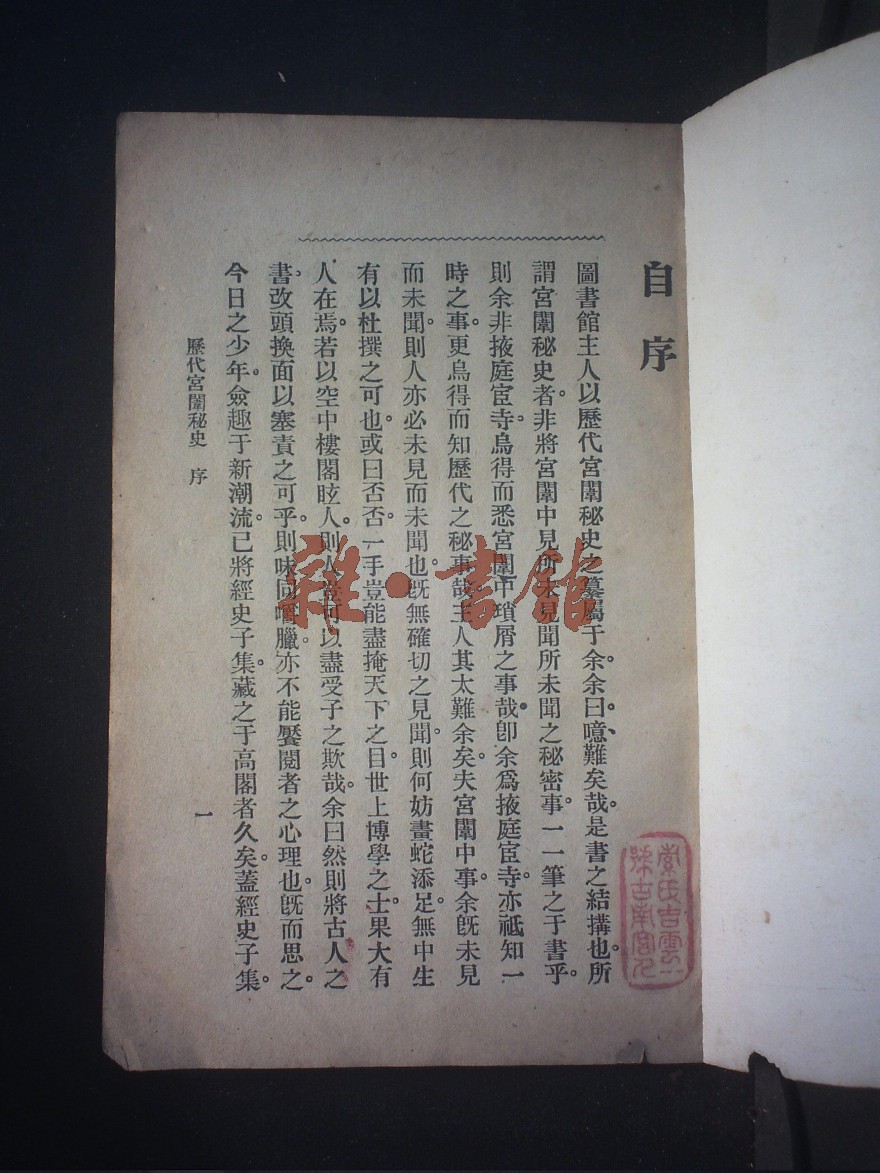 自序
圖書館主人以歷代宮闈秘史之纂屬于余。余曰。噫、難矣哉。是書之結搆也。所
謂宮闈秘史者。非將宮闈中見所未見聞所未聞之秘密事。一一筆之于書乎。
則余非掖庭宦寺。烏得而悉宮闈中瑣屑之事哉。卽余爲掖庭宦寺。亦祗知一
時之事。更烏得而知歷代之秘事哉。主人其太難余矣。夫宮闈中事。余旣未見
而未聞。則人亦必未見而未聞也。旣無確切之見聞。則何妨畫蛇添足。無中生
有以杜撰之可也。或曰否否。一手豈能盡掩天下之目。世上博學之士。果大有
人在焉。若以空中樓閣眩人。則人豈可以盡受子之欺哉。余曰然則將古人之
書。改頭換面以塞責之可乎。則味同嚼臘。亦不能饜閱者之心理也。旣而思之。
今日之少年。僉趣于新潮流。已將經史子集。藏之于高閣者久矣。蓋經史子集。
歷代宮闈秘史 序
一
雜·書館